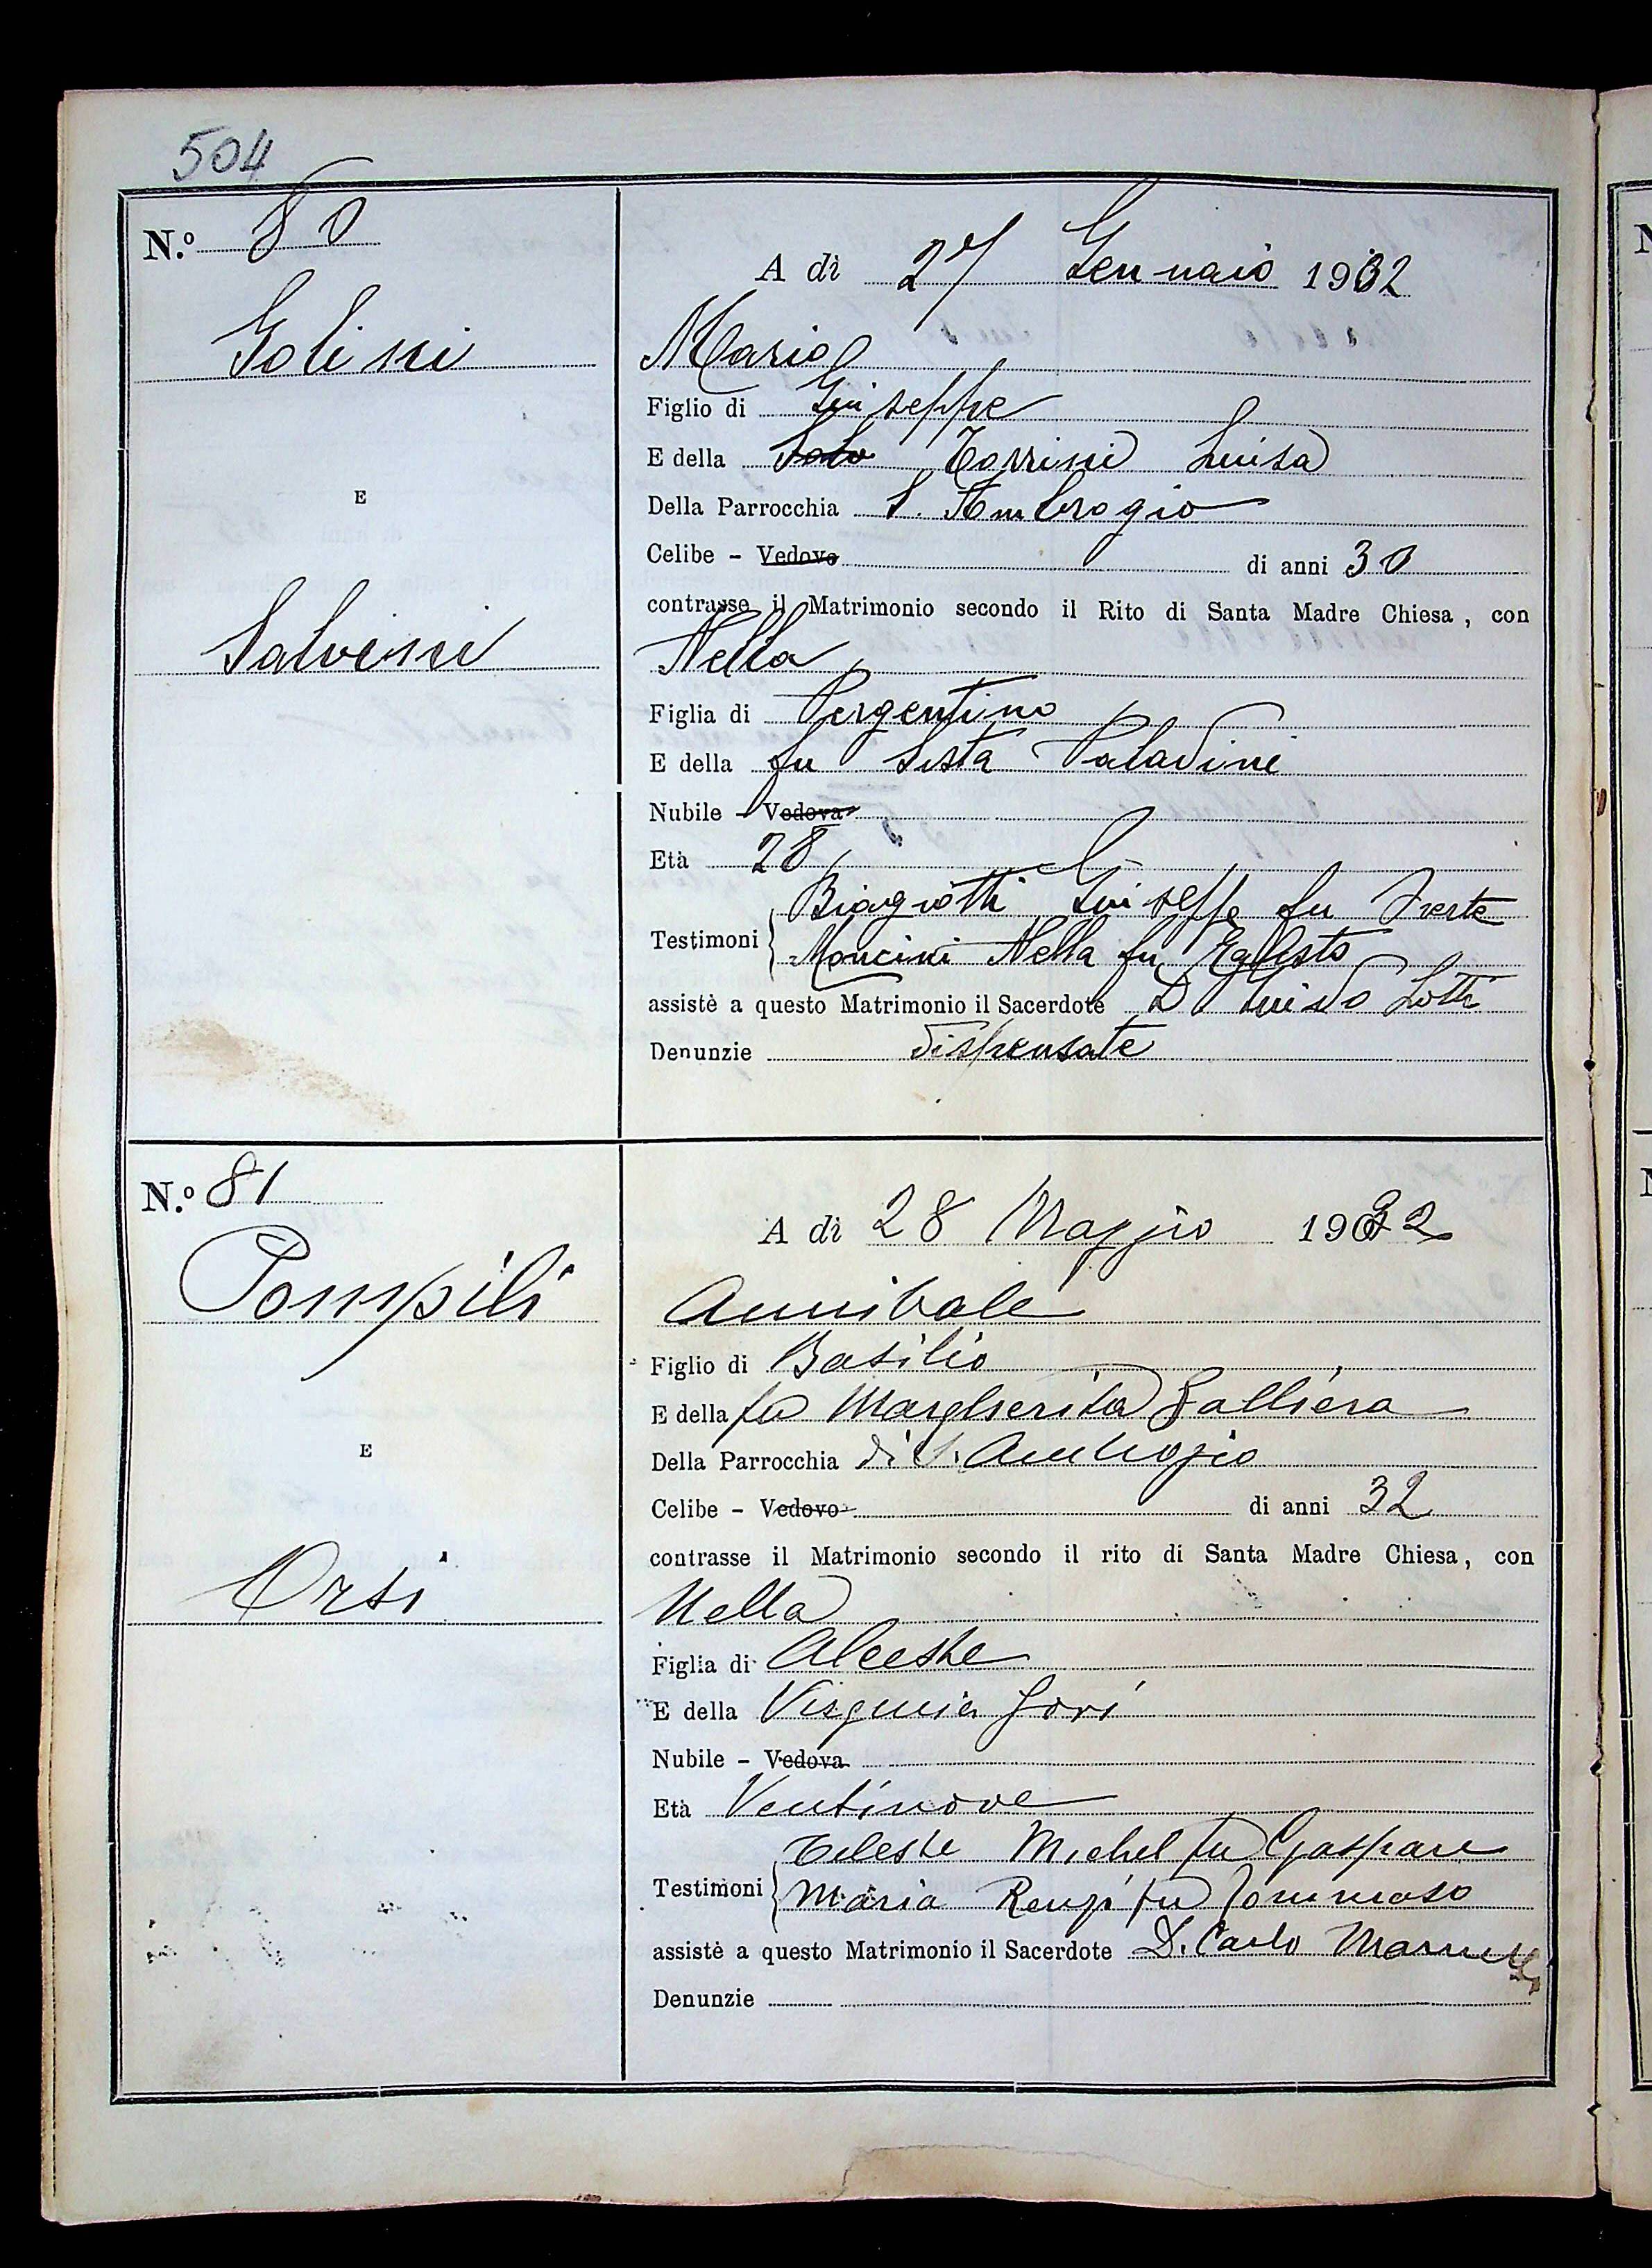 504
N.º 80
A dì 27 Gennaio 1932
Golini
Mario
Figlio di Giuseppe
E della Torrini Luisa
Della Parrocchia S. Ambrogio
E
Celibe - Vedovo di anni 30
contrasse il Matrimonio secondo il Rito di Santa Madre Chiesa, con
Salvini
Nella
Figlia di Pergentino
E della fu Sista Paladini
Nubile - Vedova
Età 28
Biagiotti Giuseppe fu Oreste
Testimoni
Mancini Nella fu Egisto
assistè a questo Matrimonio il Sacerdote D Guido Lotti
Denunzie dispensate
N.º 81
A dì 28 Maggio 1932
Pompili
Annibale
Figlio di Basilio
E della fu Margherita Galliera
Della Parrocchia di S. Ambrogio
E
Celibe - Vedovo di anni 32
contrasse il Matrimonio secondo il rito di Santa Madre Chiesa, con
Orsi
Nella
Figlia di Alceste
E della Virginia Gori
Nubile - Vedova
Età Ventinove
Celeste Michel fu Gaspare
Testimoni
Maria Renzi fu Tommaso
assistè a questo Matrimonio il Sacerdote D. Carlo
Denunzie